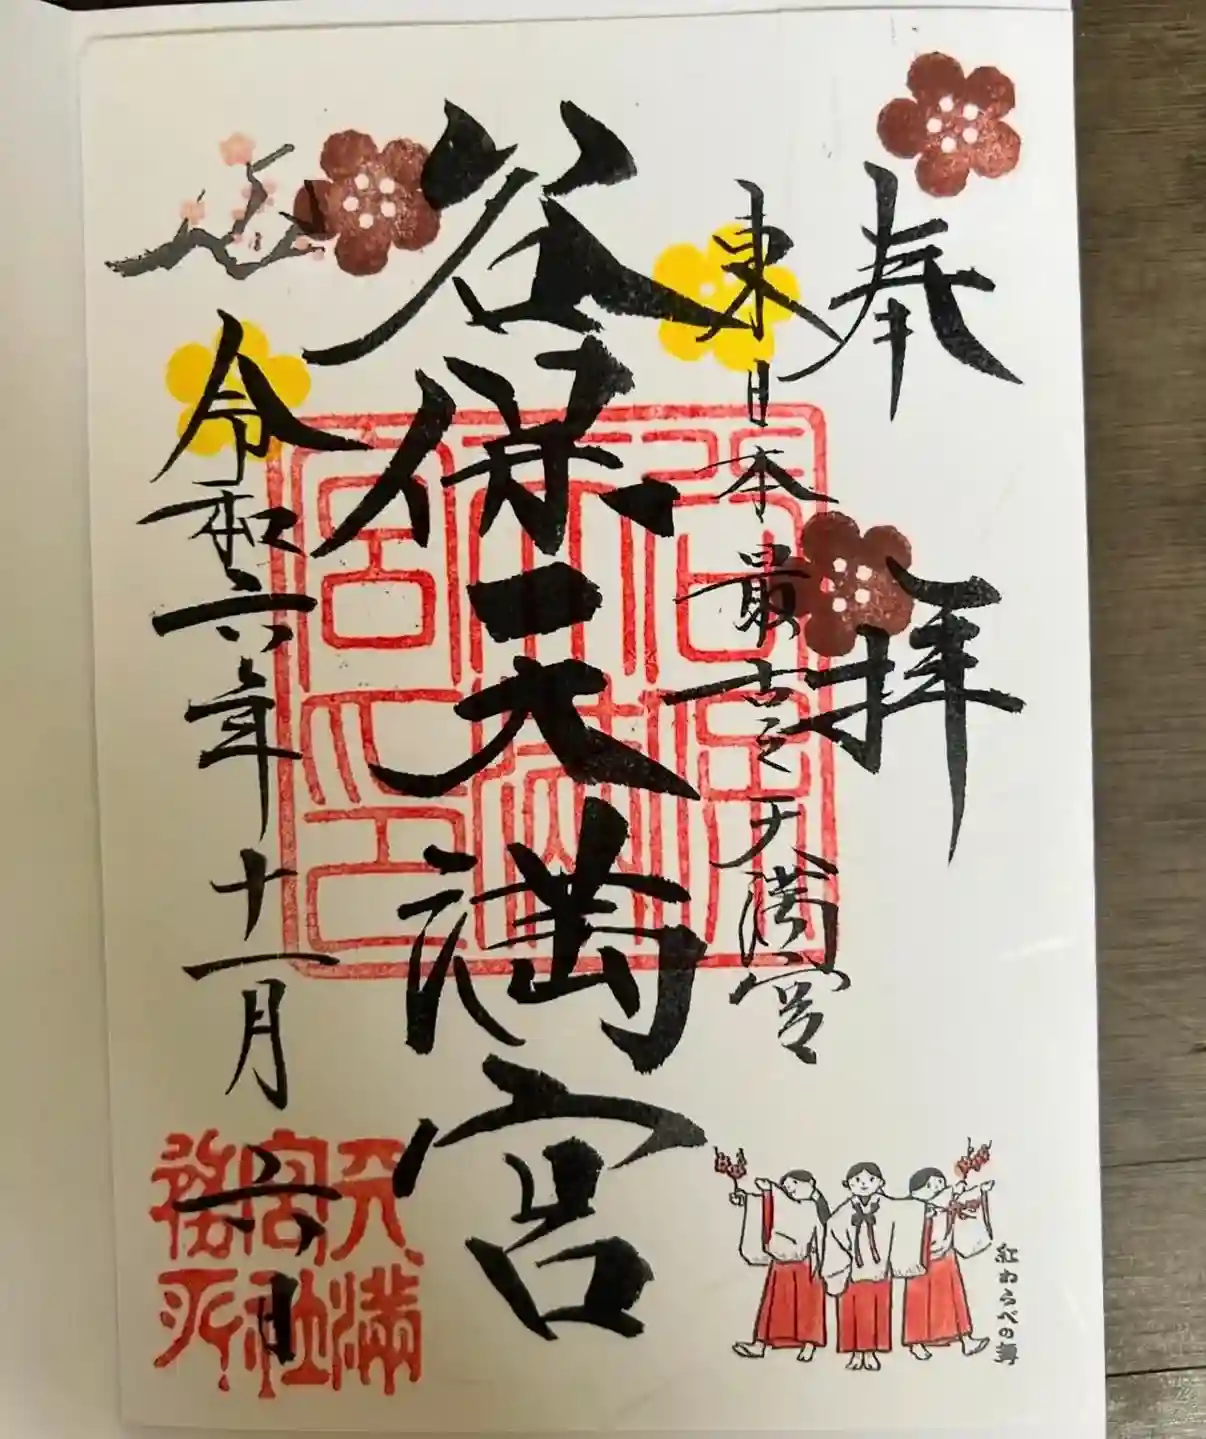 奉拝
東日本最古之天満宮
谷保天満宮
令和六年十一月六日
谷保天満宮印
天満宮社務所
紅わらべの舞